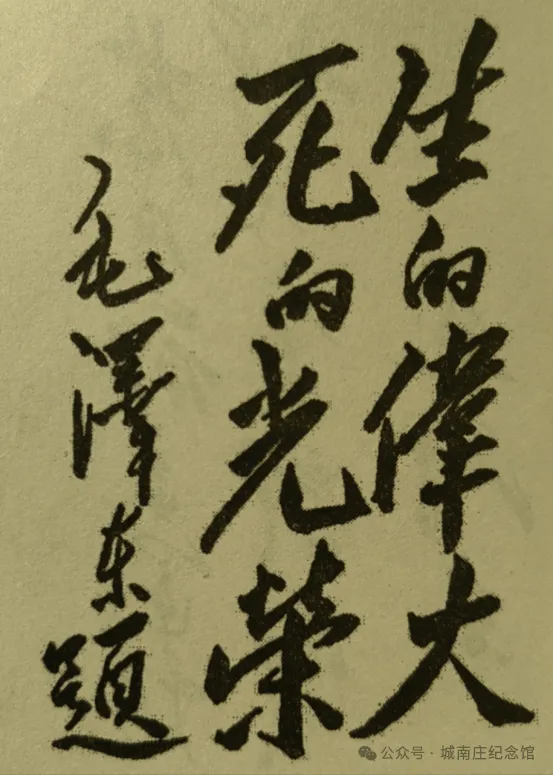 生的偉大
死的光榮
毛澤东題
公众号·城南庄纪念馆